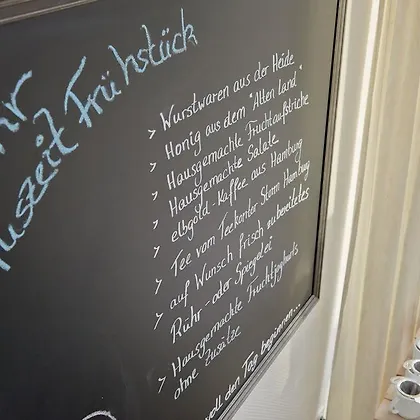 Frühstück
> Wurstwaren aus der Heide
> Honig aus dem "Alten Land"
> Hausgemachte Fruchtaufstriche
> Hausgemachte Salate
> elbgold-Kaffee aus Hamburg
> Tee vom Teekontor Storm Hamburg
> auf Wunsch frisch zubereitetes
Rühr- oder Spiegelei
> Hausgemachte Fruchtjoghurts
ohne Zusätze
den Tag beginnen...